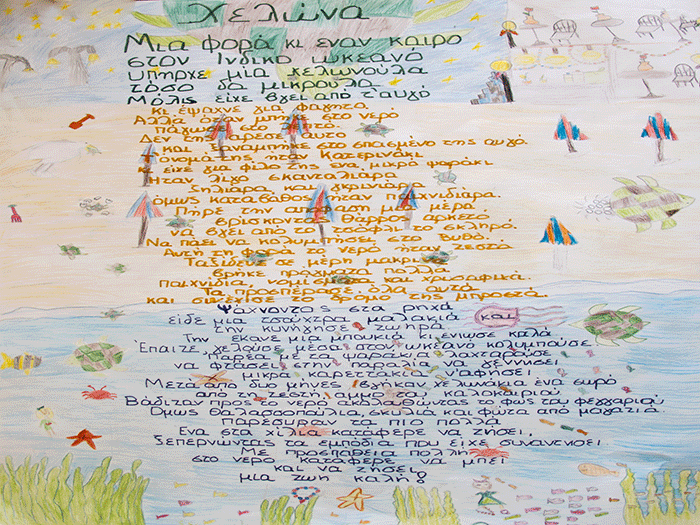 Χελώνα
Μια φορά κι έναν καιρό
στον Ινδικό ωκεανό
υπήρχε μια χελωνούλα
τόσο δα μικρούλα
Μόλις είχε βγει από τ' αυγό
κι έψαχνε για φαγητό
Αλλά όταν μπήκε στο νερό
πάγωσε στο λεπτό.
Δεν της άρεσε αυτό
και αναμπήκε στο σπασμένο της αυγό.
Τ' όνομά της ήταν Κατερινάκι
κι είχε για φίλο της ένα μικρό ψαράκι
Ήταν λίγο σκανταλιάρα
ζηλιάρα και γκρινιάρα
όμως κατάβαθος ήταν παιχνιδιάρα.
Πήρε την απόφαση μια μέρα
βρίσκοντας θάρρος αρκετό
να βγει από το τσόφλι το σκληρό.
Να πάει να κολυμπήσει στο βυθό
Αυτή τη φορά το νερό ήταν ζεστό
Ταξίδεψε σε μέρη μακρινά
βρήκε πράγματα πολλά
Παιχνίδια, νομίσματα και χρυσαφικά.
Τα προσπέρασε όλα αυτά
και συνέχισε το δρόμο της μπροστά.
Ψάχνοντας στα ρηχά
είδε μια τσούχτρα μαλακιά και
την κυνήγησε ζωηρά.
Την έκανε μια μπουκιά κι ένιωσε καλά
Έπαιζε, γελούσε μέσα στον ωκεανό κολυμπούσε
Παρέα με τα ψαράκια λαχταρούσε
να φτάσει στην παραλία να γεννήσει
μικρά καρεττάκια ν' αφήσει
Μετά από δυο μήνες βγήκαν χελωνάκια ένα σωρό
από τη ζεστή άμμο του καλοκαιριού
Βάδιζαν προς το νερό ακολουθώντας το φως του φεγγαριού
Όμως θαλασσοπούλια, σκυλιά και φώτα από μαγαζιά
παρέσυραν τα πιο πολλά
Ένα στα χίλια κατάφερε να ζήσει,
ξεπερνώντας τα εμπόδια που είχε συναντήσει
Με προσπάθεια πολλή
στο νερό κατάφερε να μπει
και να ζήσει
μια ζωή καλή!